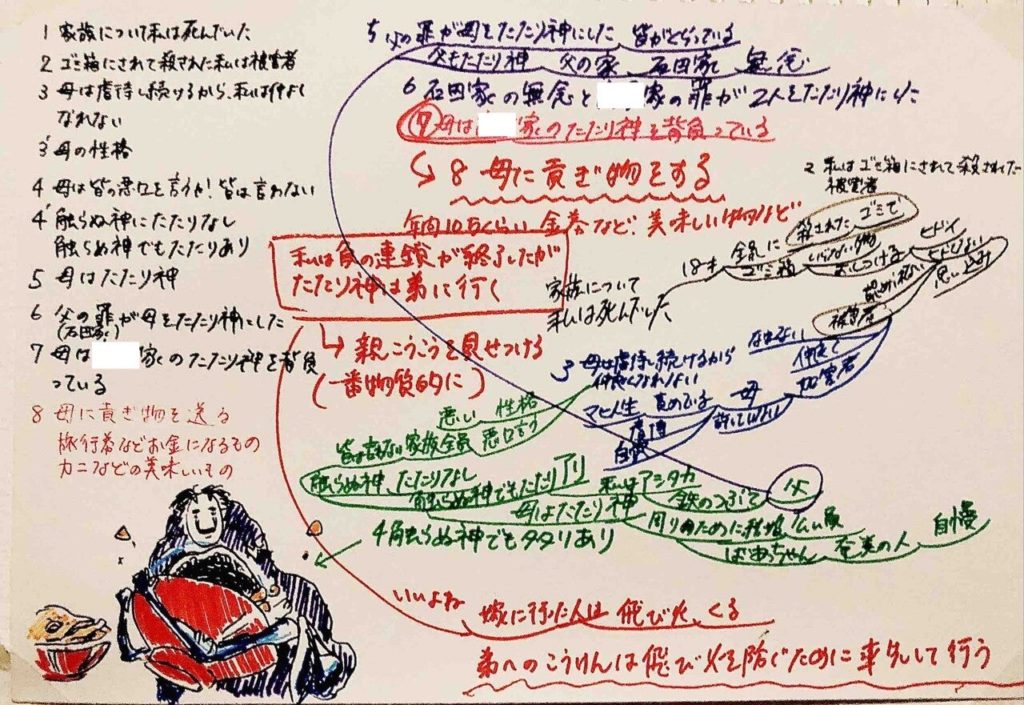 1 家族について私は死んでいた
2 ゴミ箱にされて殺された私は被害者
3 母は虐待し続けるから、私は仲よく
なれない
3' 母の性格
4 母は皆の悪口を言うせ! 皆は言わない
4' 触らぬ神にたたりなし
触らぬ神でもたたりあり
5 母はたたり神
6 父の罪が母をたたり神にした
(石田家)
7 母は 家のたたり神を背負
っている
8 母に貢ぎ物を送る
旅行券などお金になるもの
カニなどの美味しいもの
5 父の罪が母をたたり神にした 皆がそらっている
父もたたり神 父の家、石田家 無念
6 石田家の無念と 家の罪が2人をたたり神にした
⑦ 母は 家のたたり神を背負っている
8 母に貢ぎ物をする
年間10万くらい 金券など、美味しい物など
私は負の連鎖が終了したが
たたり神は弟に行く
親こうこうを見せつける
(一番物質的に)
2 私はゴミ箱にされて殺されてた
被害者
家族について
私は死んでいた
18才 全員に 殺された ゴミで
ゴミ箱 いらない物 おしつける
ヒドイ
ヒドくない
認めない 思い込み
被害者
3 母は虐待し続けるから
仲良くなれない
なれない 仲良く
加害者
母
マヒ人生 責めている 許していない
虐待
自慢
悪い 性格
皆は言わない 家族全員 悪口言う
触らぬ神、たたりなし
触らぬ神でもたたりアリ
私はアシタカ
母はたたり神 鉄のつぶて 父
周りのために 仏に展
ばあっちゃん 奄美の人 自慢
4 触らぬ神でもタタリあり
いいよね 嫁に行った人は 飛び火、くる
弟へのこうけんは飛び火を防ぐために率先して行う